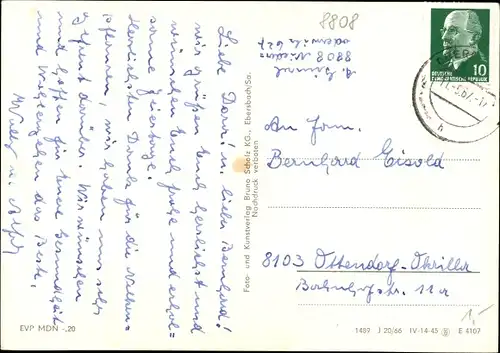 8808
8808 Nieder-
oderwitz 627
DEUTSCHE
DEMOKRATISCHE REPUBLIK
10
Liebe Dora! u. lieber Bernhard!
wir grüßen Euch herzlichst und
wünschen Euch frohe und erhol=
same Feiertage.
Herzlichsten Dank für die
wir haben uns sehr
gefreut darüber. Wir wünschen
und hoffen für Eure Gesundheit
und Wohlergehen das Beste.
Foto- und Kunstverlag Bruno Scholz KG., Ebersbach/Sa.
Nachdruck verboten
An Fam.
Bernhard Eisold
8103 Ottendorf-Okrilla
Bahnhofstr. 11a
EVP MDN -,20
1489 J 20/66 IV-14-45 E 4107
1,-